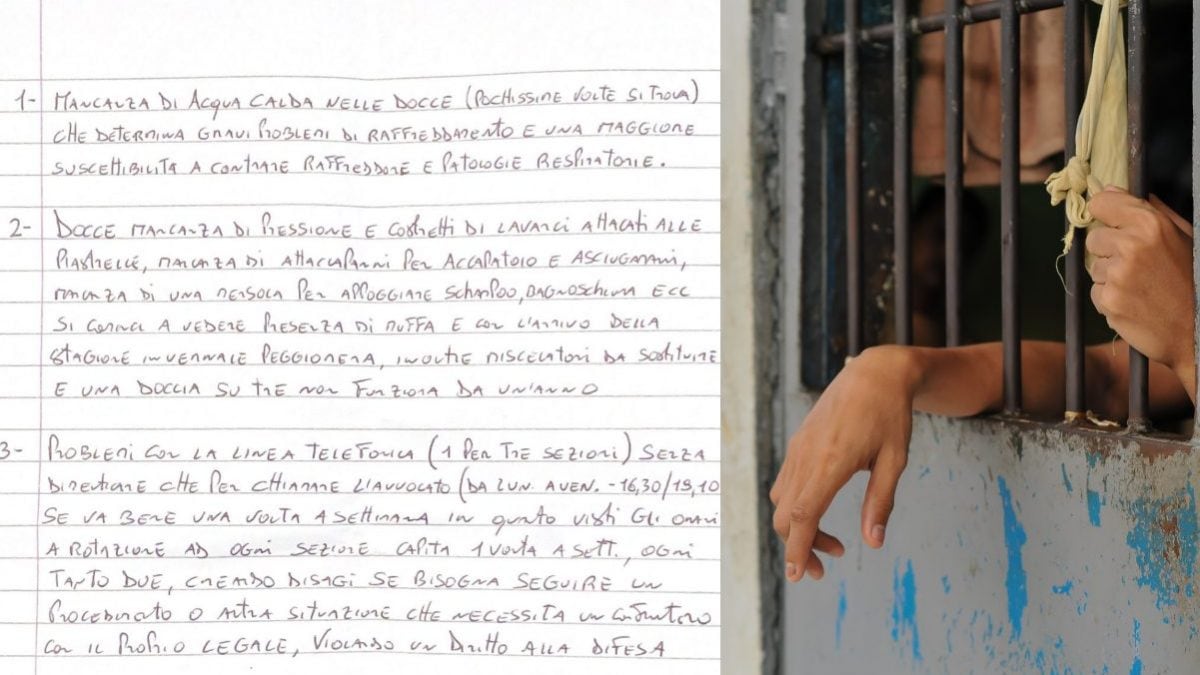 1- MANCANZA DI ACQUA CALDA NELLE DOCCE (POCHISSIME VOLTE SI TROVA)
CHE DETERMINA GRAVI PROBLEMI DI RAFFREDDAMENTO E UNA MAGGIORE
SUSCETTIBILITÀ A CONTRARE RAFFREDDORE E PATOLOGIE RESPIRATORIE.
2- DOCCE MANCANZA DI PRESSIONE E COSTRETTI DI LAVARCI ATTACATI ALLE
PIASTRELLE, MANCANZA DI ATTACCAPANNI PER ACCAPATOIO E ASCIUGAMANI,
MANCANZA DI UNA MENSOLA PER APPOGGIARE SCHAMPOO, BAGNOSCHIUMA ECC
SI COMINCI A VEDERE PRESENZA DI MUFFA E CON L'ARRIVO DELLA
STAGIONE INVERNALE PEGGIORERA, INOLTRE MISCELATORI DA SOSTITUIRE
E UNA DOCCIA SU TRE NON FUNZIONA DA UN'ANNO
3- PROBLEMI CON LA LINEA TELEFONICA (1 PER TRE SEZIONI) SENZA
DIMENTICARE CHE PER CHIAMARE L'AVVOCATO (DA LUN. A VEN. - 16,30/19,10
SE VA BENE UNA VOLTA A SETTIMANA IN QUANTO VISTI GLI ORARI
A ROTAZIONE AD OGNI SEZIONE CAPITA 1 VOLTA A SETT., OGNI
TANTO DUE, CREANDO DISAGI SE BISOGNA SEGUIRE UN
PROCEDIMENTO O ALTRA SITUAZIONE CHE NECESSITA UN CONFRONTO
CON IL PROPRIO LEGALE, VIOLANDO UN DIRITTO ALLA DIFESA